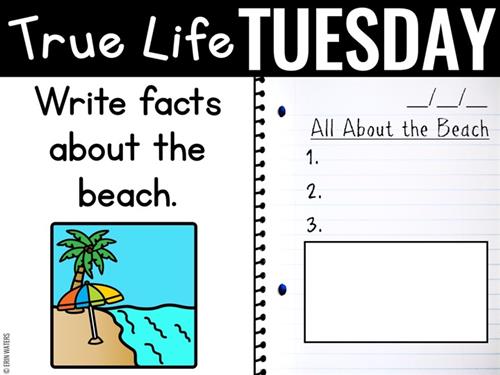 True Life TUESDAY
Write facts
about the
beach.
__/__/__
All About the Beach
1.
2.
3.
© ERIN WATERS